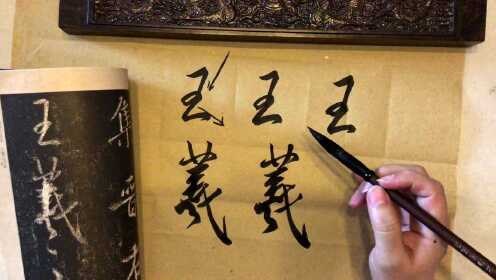 王
王羲
王羲
集晉
王羲